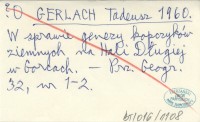 :O GERLACH Tadeusz 1960.
W sprawie genezy kopczyków
ziemnych na Hali Długiej
w Gorcach. — Prz. Geogr.
32, nr 1-2.
bT/016/1108